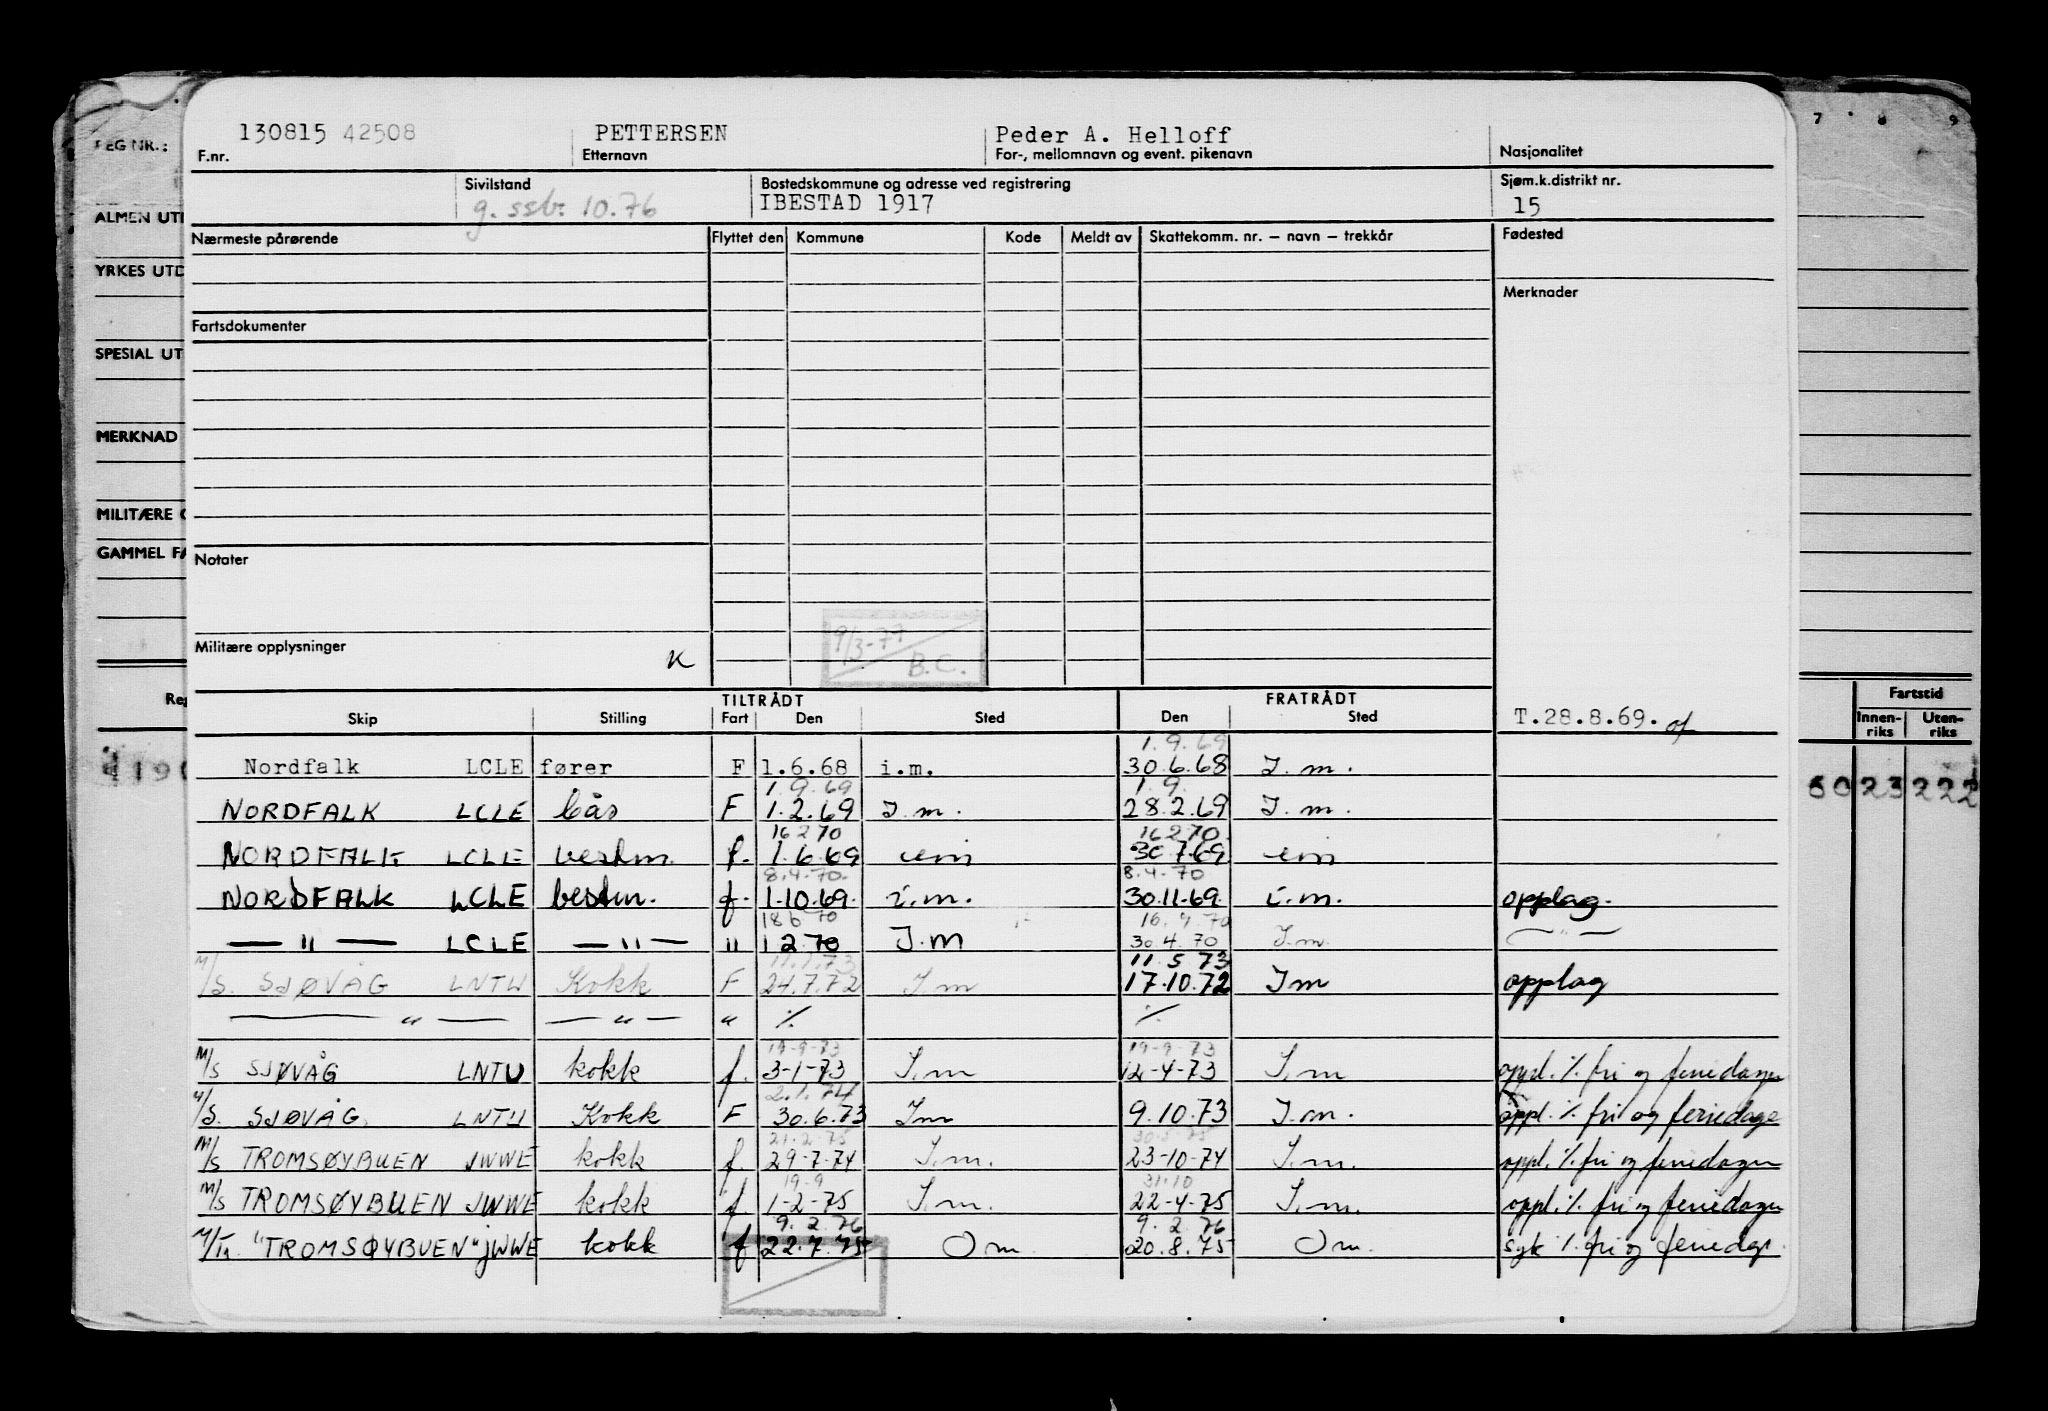 130815 42508 PETTERSEN Peder A. Helloff
F.nr. Etternavn For-, mellomnavn og event. pikenavn Nasjonalitet
REG NR.: 7 8 9
Sivilstand Bostedskommune og adresse ved registrering Sjøm.k.distrikt nr.
g. ssb. 10.76 IBESTAD 1917 15
ALMEN UT
Nærmeste pårørende Flyttet den Kommune Kode Meldt av Skattekomm. nr. – navn – trekkår Fødested
YRKES UTD
Merknader
Fartsdokumenter
SPESIAL UT
MERKNAD
MILITÆRE
GAMMEL FA
Notater
Militære opplysninger K
9/3-77
B.C.
TILTRÅDT FRATRÅDT
Reg Skip Stilling Fart Den Sted Den Sted T.28.8.69. Fartstid
Innen-riks Uten-riks
1.9.69
Nordfalk LCLE fører F 1.6.68 i.m. 30.6.68 I.m.
60 23 222
1.9.69 1.9.
NORDFALK LCLE bås F 1.2.69 I.m. 28.2.69 I.m.
16 2 70 16 2 70
NORDFALK LCLE bestm. f. 1.6.69 30.7.69
8.4.70. 8.4.70
NORDFALK LCLE bestm. f. 1.10.69. i.m. 30.11.69. i.m. opplag.
18 6 70 16.4.70
— " — LCLE — " — " 1 2 70 I.m 30.4.70 I.m. — " —
11.5.73
M/S. SJØVÅG LNTU Kokk F 24.7.72 I m 17.10.72 I m opplag
— " — — " — " % %
19-9-73 19-9-73
M/S SJØVÅG LNTU kokk f. 3-1-73 I.m 12-4-73 I.m oppl. % fri og feriedager
2.1.74
M/S. SJØVÅG LNTU Kokk F 30.6.73 I m 9.10.73 I.m. oppl. % fri og feriedage
21-2-75 30-5-75
M/S TROMSØYBUEN JWWE kokk f. 29-7-74 I.m. 23-10-74 I.m. oppl. % fri og feriedager
19-9 31.10
M/S TROMSØYBUEN JWWE kokk f. 1-2-75 I.m. 22-4-75 I.m. oppl. % fri og feriedager
9.2.76 9.2.76
"TROMSØYBUEN" JWWE kokk f 22.7.75 O m 20.8.75 O m. syk % fri og feriedgr.